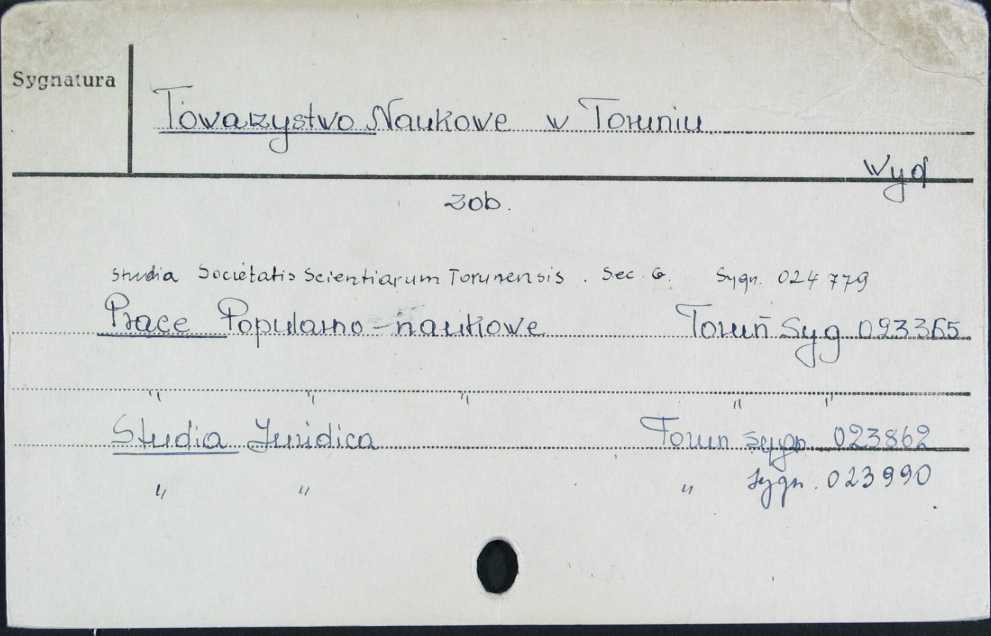 Sygnatura
Towarzystwo Naukowe w Toruniu
Wyd
zob.
Studia Societatis Scientiarum Torunensis . Sec. G. Sygn. 024 779
Prace Popularno-naukowe Toruń Syg 023365
" " " " "
Studia Juridica Toruń Sygn. 023862
" " " Sygn. 023990